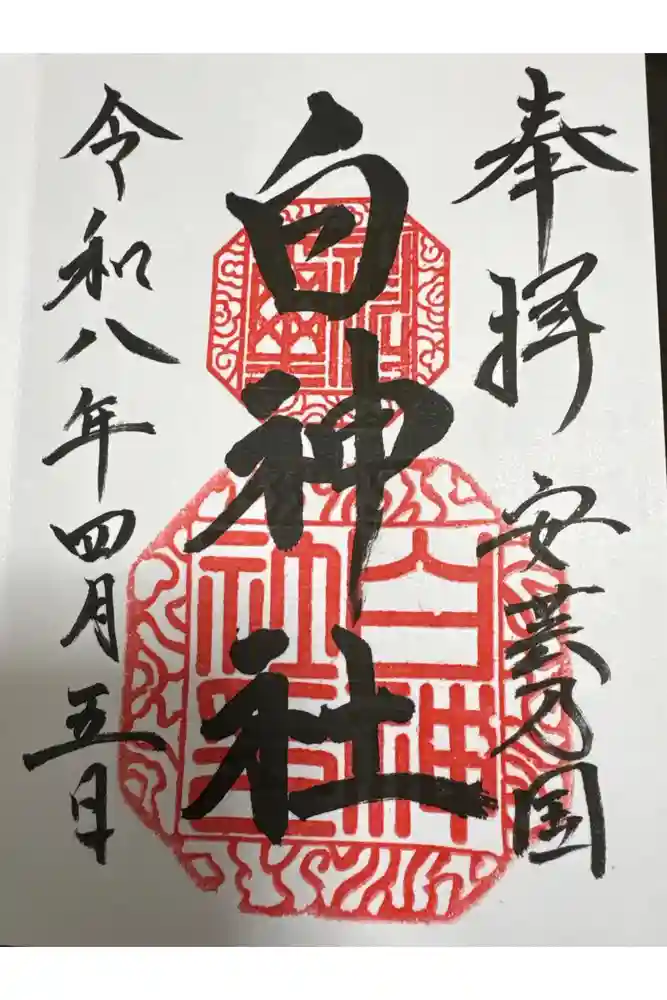 奉拝 安芸乃国
白神社
令和八年四月五日
白神
社璽